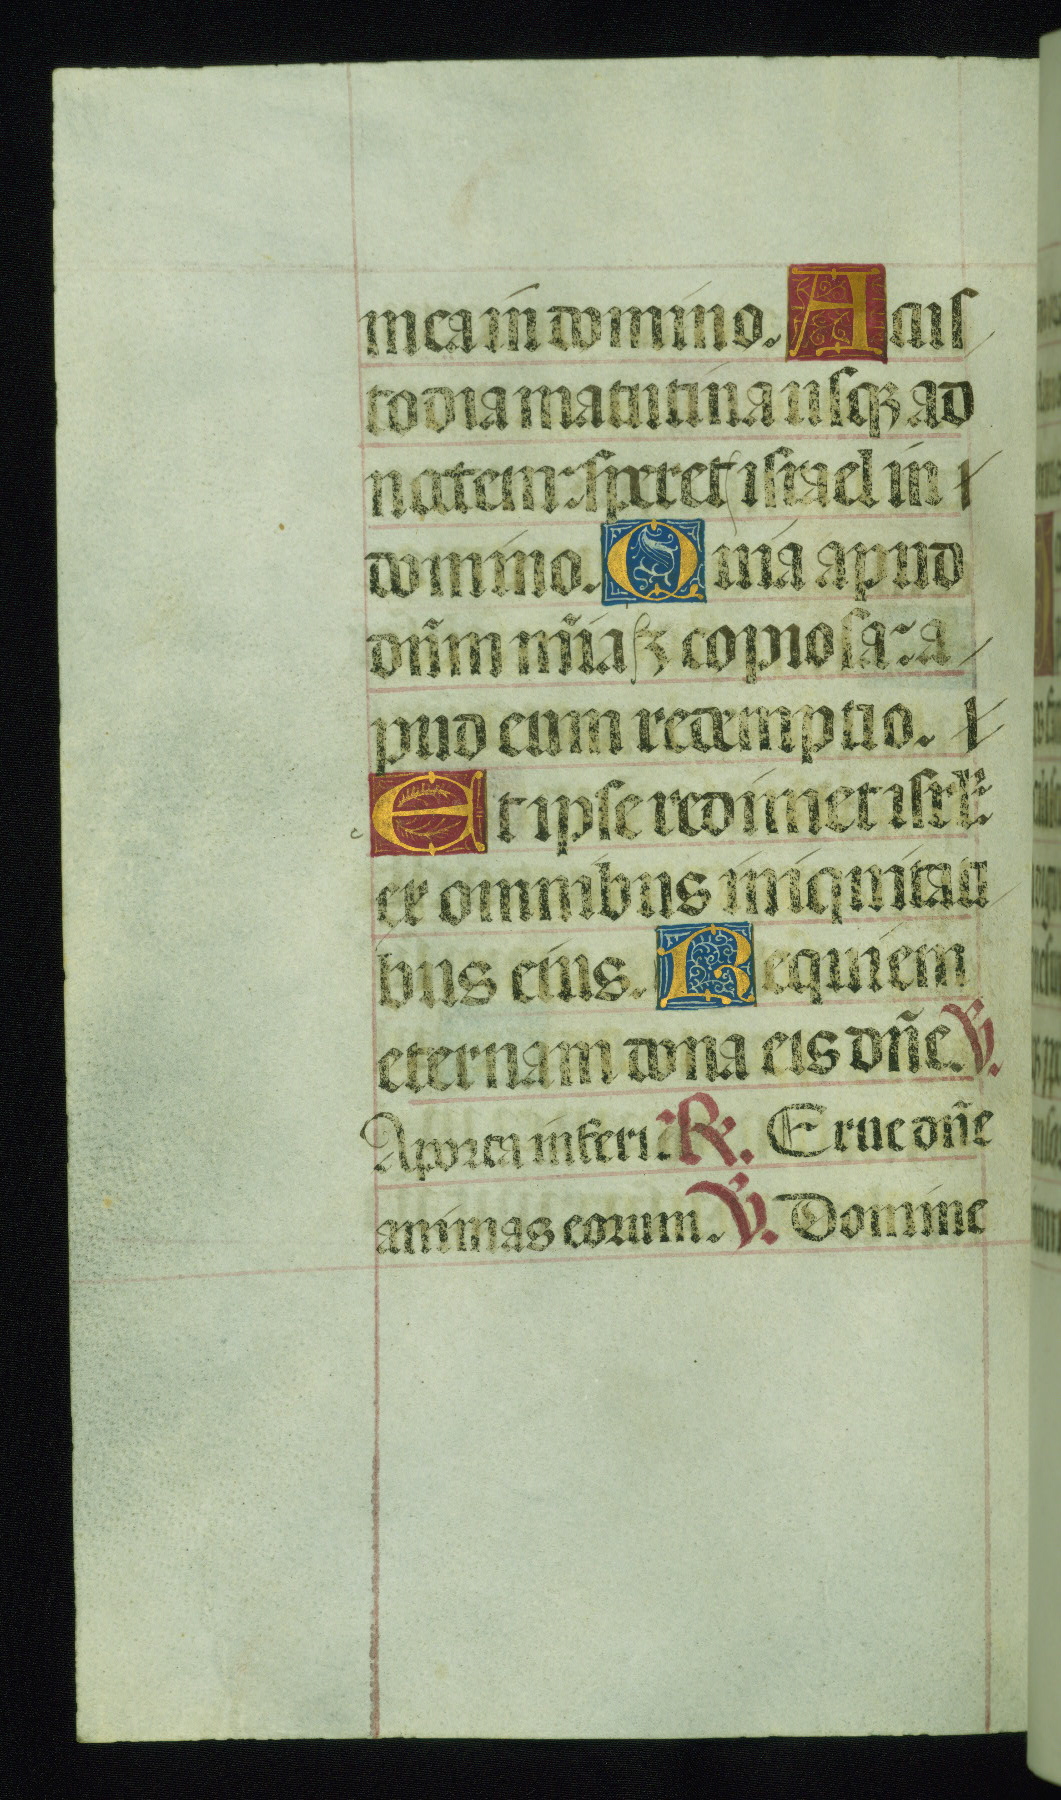 mea in domino. A cus
todia matutina usqꝫ ad
noctem: speret israel in
domino. Quia apud
dñm mĩaꝫ copiosa: a
pud eum redemptio.
Et ipse redimet isrl:
ex omnibus iniquitati
bus eius. Requiem
eternam dona eis dñe. ℣.
A porta inferi ℟. Erue dñe
animas eorum. ℣. Domine